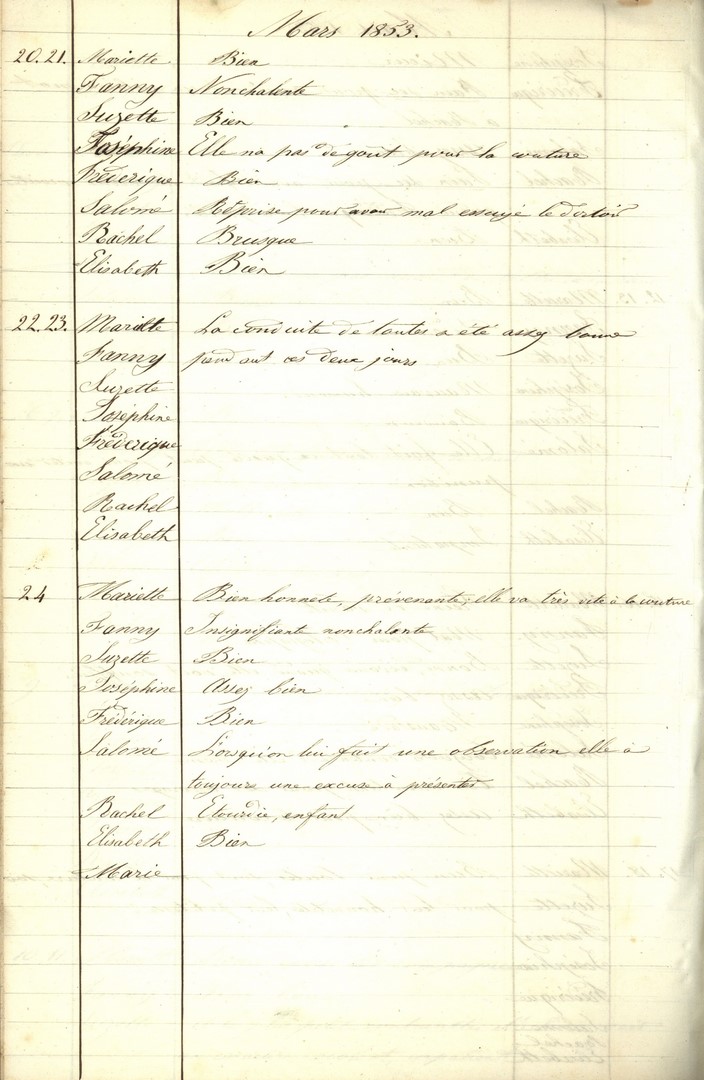 Mars 1853.
20.21. Mariette Bien
Fanny Nonchalente
Suzette Bien
Joséphine Elle na pas de gout pour la couture
Fréderique Bien
Salomé Réprise pour avoir mal essuyé le dortoir
Rachel Brusque
Elisabeth Bien
22.23. Mariette La conduite de toutes a été assez bonne
Fanny pendant ces deux jours
Suzette
Joséphine
Fréderique
Salomé
Rachel
Elisabeth
24 Mariette Bien honnete, prévenante, elle va très vite à la couture
Fanny Insignifiante nonchalante
Suzette Bien
Joséphine Assez bien
Fréderique Bien
Salomé Lorsqu'on lui fait une observation elle à
toujours une excuse à présenter
Rachel Etourdie, enfant
Elisabeth Bien
Marie